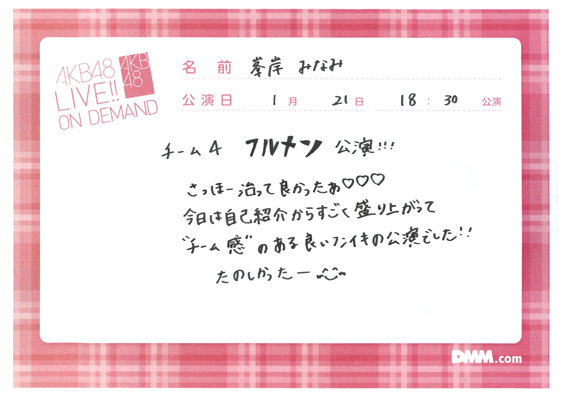 AKB48
LIVE!!
ON DEMAND
AKB
48
名 前 峯岸 みなみ
公演日 1月 21日 18:30 公演
チーム4 フルメン 公演!!!
さっほー治って良かったぁ♡♡♡
今日は自己紹介からすごく盛り上がって
"チーム感"のある良いフンイキの公演でした!!
たのしかったー
DMM.com